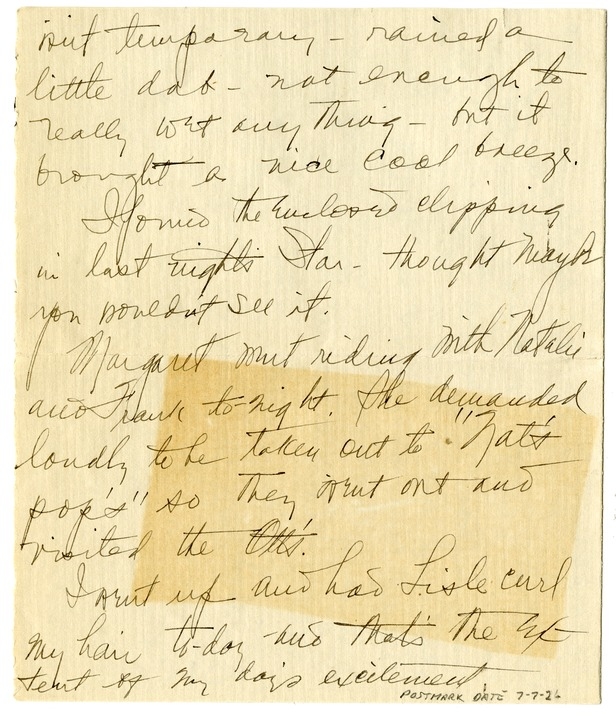 but temporary – rained a
little dab – not enough to
really wet anything – but it
brought a nice cool breeze.
I found the enclosed clipping
in last night's Star – thought maybe
you wouldn't see it.
Margaret went riding with Natalie
and Frank to-night. She demanded
loudly to be taken out to "Nat's
pop's" so they went out and
visited the Ott's.
I went up and had Lisle curl
my hair to-day and that's the ex-
tent of my day's excitement
POSTMARK DATE 7-7-26